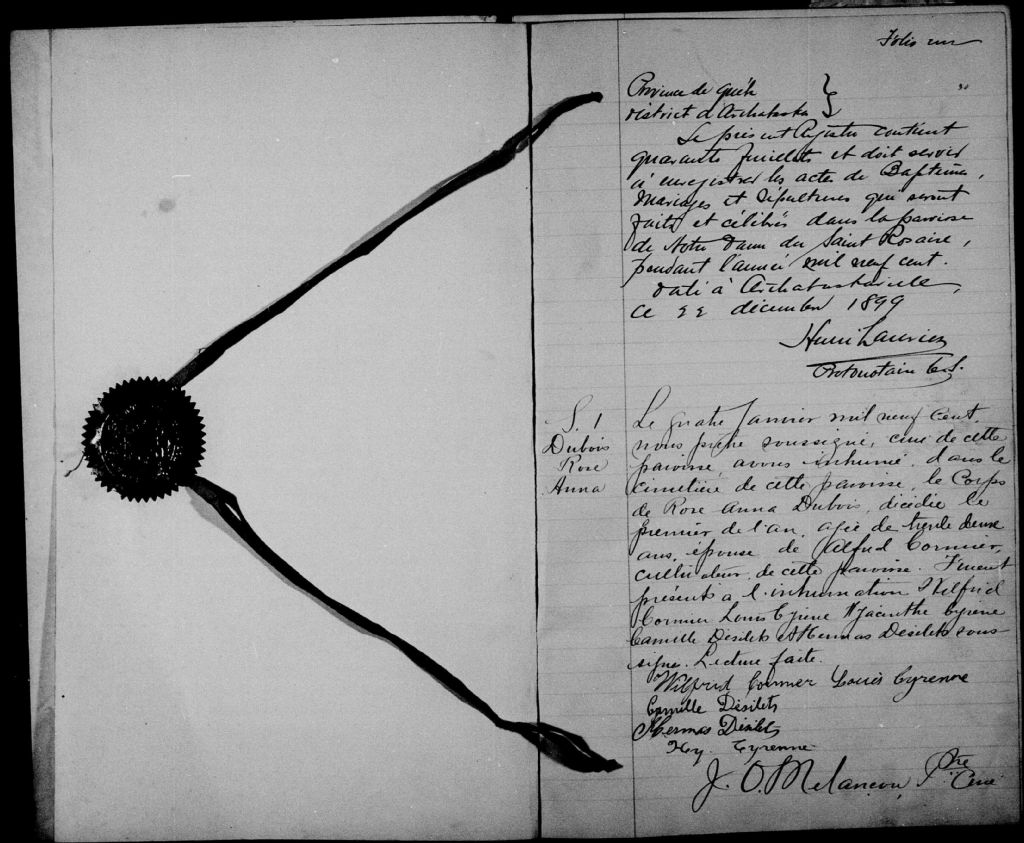 Folio un
Province de Québec
District d'Arthabaska
Le présent Registre contient
quarante feuillets et doit servir
à enregistrer les actes de Baptêmes,
Mariages et Sépultures qui seront
faits et célébrés dans la paroisse
de Notre Dame du Saint Rosaire,
pendant l'année mil neuf cent.
Daté à Arthabaskaville,
ce 22 décembre 1899
Henri Laurier
Protonotaire C.S.
S. 1
Dubois
Rose
Anna
Le quatre Janvier mil neuf cent,
nous prêtre soussigné, curé de cette
paroisse, avons inhumé, dans le
cimetière de cette paroisse, le Corps
de Rose Anna Dubois, décédée le
premier de l'an, agée de trente deux
ans, épouse de Alfred Cormier,
cultivateur, de cette paroisse. Furent
présents à l'inhumation Wilfrid
Cormier Louis Cyrène Hyacinthe Cyrène
Camille Désilets & Hermas Désilets sous-
signé. Lecture faite.
Wilfrid Cormier Louis Cyrenne
Camille Désilets
Hermas Désilets
Hy. Cyrenne
J. O. Melançon, Ptre
Curé